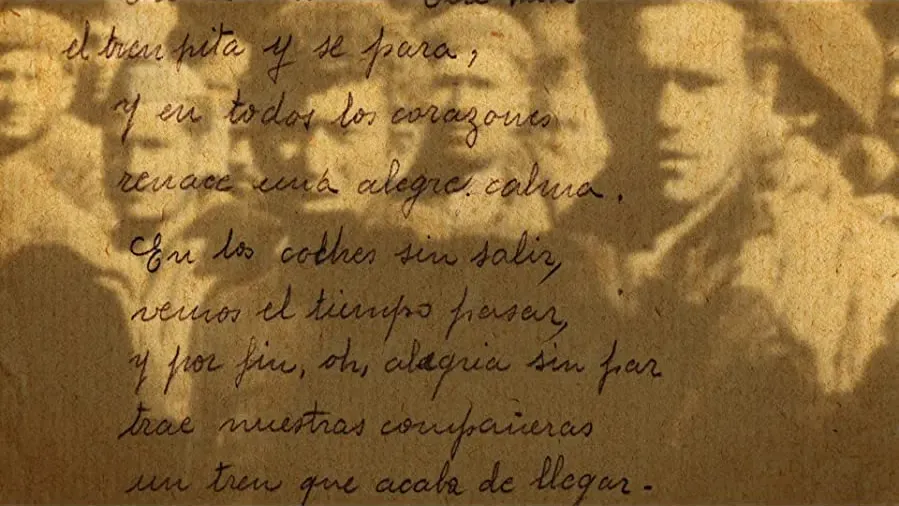 el tren pita y se para,
y en todos los corazones
renace una alegre calma.
En los coches sin salir,
vemos el tiempo pasar,
y por fin, oh, alegria sin par
trae nuestras compañeras
un tren que acaba de llegar.